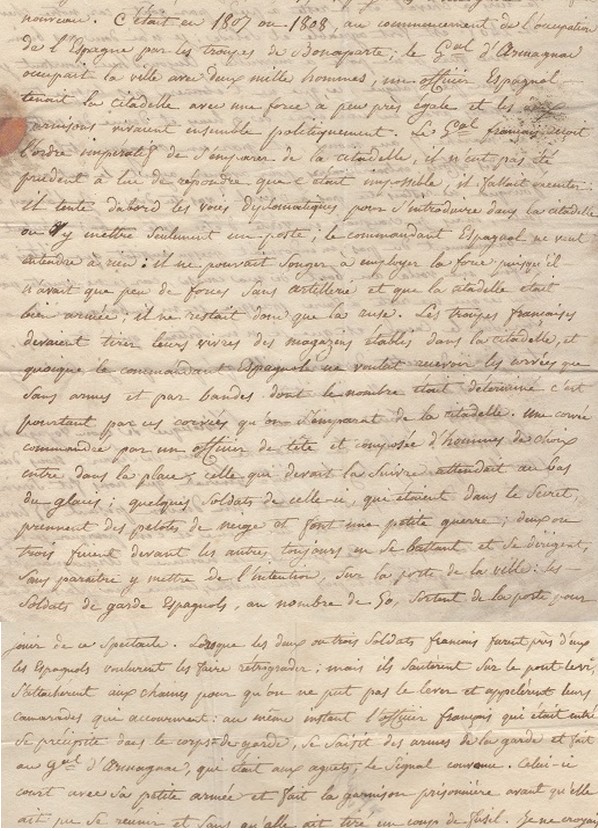 nouveau. C'était en 1807 ou 1808 au commencement de l'occupation
de l'Espagne par les troupes de Bonaparte; le Gal d'Armagnac
occupait la ville avec deux mille hommes, un officier Espagnol
tenoit la citadelle avec une force a peu près égale et les
garnisons vivaient ensemble politiquement. Le Gal français reçoit
l'ordre impératif de s'emparer de la citadelle, il n'eut pas été
prudent à lui de répondre que c'était impossible, il fallait exécuter:
il tente dabord les voies diplomatiques pour s'introduire dans la citadelle
ou y mettre seulement un poste; le commandant Espagnol ne veut
entendre à rien: il ne pouvait songer à employer la force puisqu'il
n'avait que peu de forces sans artillerie et que la citadelle était
bien armée; il ne restait donc que la ruse. Les troupes françaises
devaient tirer leurs vivres des magazins établis dans la citadelle, et
quoique le commandant Espagnol ne voulut recevoir les corvées que
sans armes et par bandes dont le nombre était déterminé c'est
pourtant par ces corvées qu'on s'emparat de la citadelle. une corvée
commandée par un officier de tête et composée d'hommes de choix
entre dans la place, celle qui devait la suivre attendait au bas
du glacis; quelques soldats de celle-ci, que etoient dans le secret,
prennent des pelotes de neige et font une petite guerre; deux ou
trois fuient devant les autres toujours en se battant et se dirigent,
sans paraître y mettre de l'intention, sur la porte de la ville: les
soldats de garde Espagnols, au nombre de 50, sortent de la porte pour
jouir de ce spectacle. Lorsque les deux ou trois soldats français furent près d'eux
les Espagnols voulurent les faire retrograder; mais ils sautèrent sur le pont levis,
s'attachèrent aux chaines pour qu'on ne put pas le lever et appelèrent leurs
camarades qui accourment: au même instant l'officier français qui était entré
se précipite dans le corps-de garde, se saisit des armes de la garde et fait
au Gal d'Armagnac, qui était aux aguets, le signal convenu. Celui-ci
court avec sa petite armée et fait la garnison prisonnière avant qu'elle
ait pu se reunir et sans qu'elle ait tiré un coup de fusil. Je ne croyais